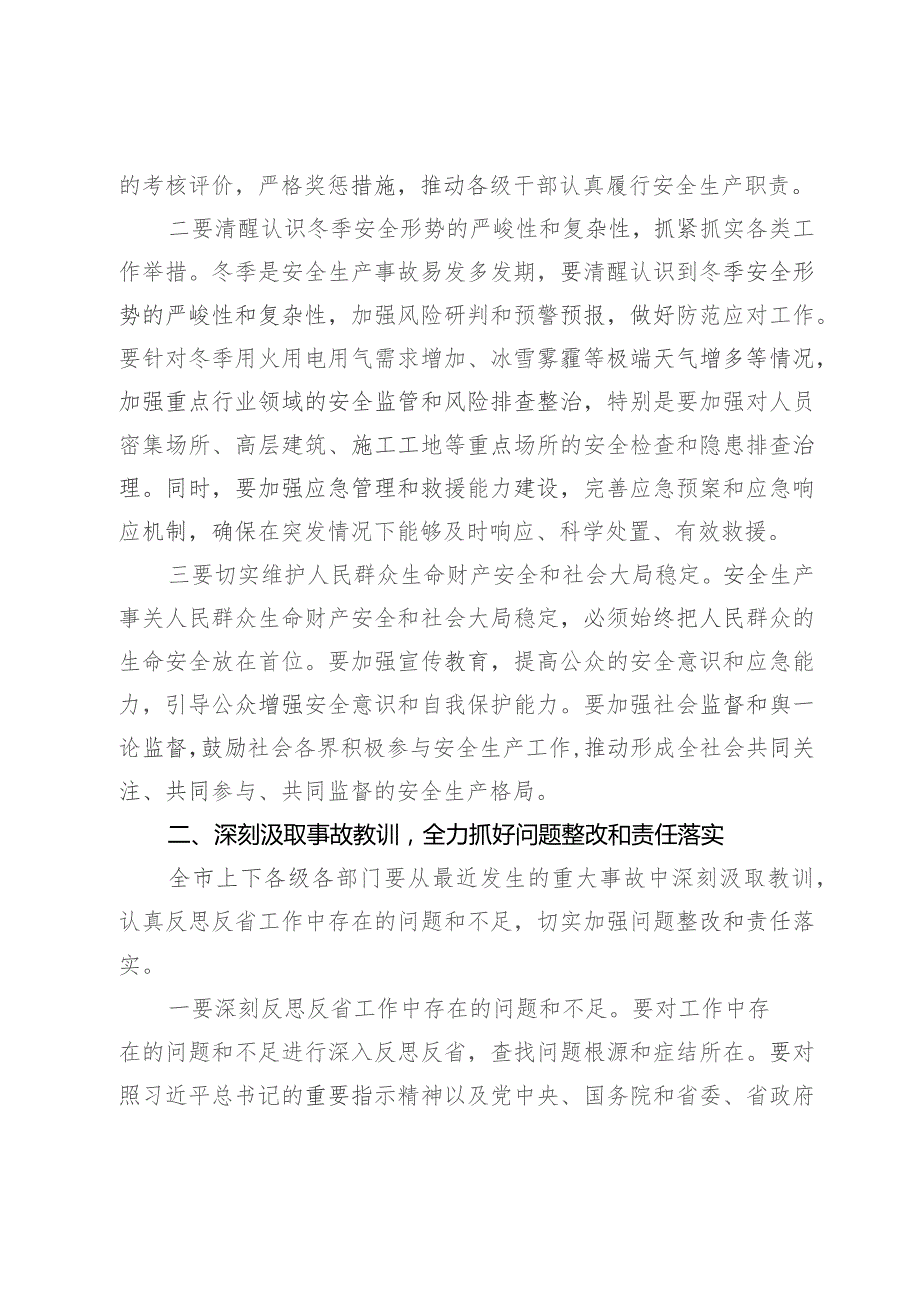 的考核评价，严格奖惩措施，推动各级干部认真履行安全生产职责。
二要清醒认识冬季安全形势的严峻性和复杂性，抓紧抓实各类工
作举措。冬季是安全生产事故易发多发期，要清醒认识到冬季安全形
势的严峻性和复杂性，加强风险研判和预警预报，做好防范应对工作。
要针对冬季用火用电用气需求增加、冰雪雾霾等极端天气增多等情况，
加强重点行业领域的安全监管和风险排查整治，特别是要加强对人员
密集场所、高层建筑、施工工地等重点场所的安全检查和隐患排查治
理。同时，要加强应急管理和救援能力建设，完善应急预案和应急响
应机制，确保在突发情况下能够及时响应、科学处置、有效救援。
三要切实维护人民群众生命财产安全和社会大局稳定。安全生产
事关人民群众生命财产安全和社会大局稳定，必须始终把人民群众的
生命安全放在首位。要加强宣传教育，提高公众的安全意识和应急能
力，引导公众增强安全意识和自我保护能力。要加强社会监督和舆一
论监督,鼓励社会各界积极参与安全生产工作,推动形成全社会共同关
注、共同参与、共同监督的安全生产格局。
二、深刻汲取事故教训，全力抓好问题整改和责任落实
全市上下各级各部门要从最近发生的重大事故中深刻汲取教训，
认真反思反省工作中存在的问题和不足，切实加强问题整改和责任落
实。
一要深刻反思反省工作中存在的问题和不足。要对工作中存
在的问题和不足进行深入反思反省，查找问题根源和症结所在。要对
照习近平总书记的重要指示精神以及党中央、国务院和省委、省政府